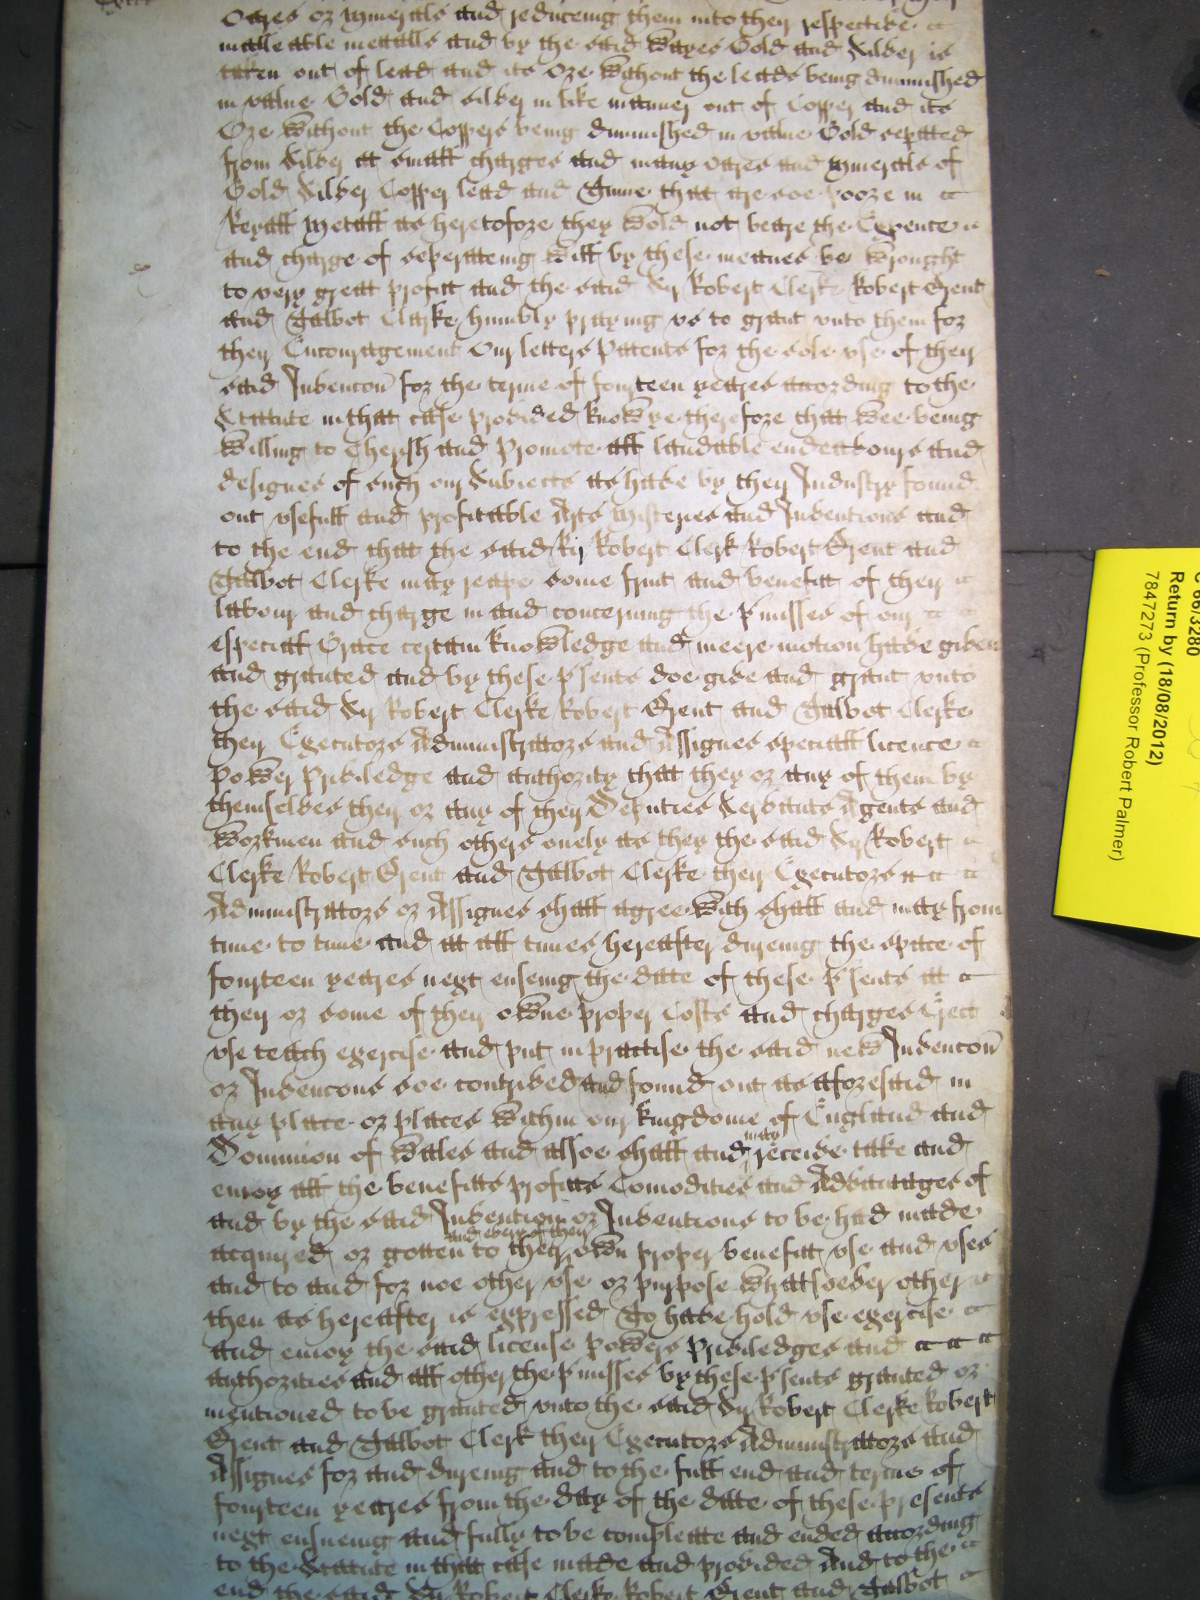 Oares or Mineralls and reduceing them into their respective
malleable mettalls and by the said Wayes Gold and Silver is
taken out of lead and its Ore without the leads being diminished
in value Gold and Silver in like manner out of Copper and its
Ore without the Coppers being diminished in value Gold sepated
from Silver att small charges and many oares and Mineralls of
Gold Silver Copper lead and Tinne that are soe poore in
Reyall Metall as heretofore they Wold not beare the Expence
and charge of seperateing Will by these meanes be Wrought
to very great profitt and the said Sr Robert Clerke Robert Brent
and Talbot Clarke humbly praying us to graunt unto them for
their Encouragement Our letters Patents for the sole use of their
said Invencon for the terme of fourteen yeares according to the
Statute in that case provided know ye therefore that Wee being
Willing to Cherish and Promote all laudable endeavours and
designes of such our Subiects as have by their Industry found
out usefull and profitable Arts Misteries and Inventions and
to the end that the said Sr Robert Clerk Robert Brent and
Talbot Clerke may reape some fruit and benefitt of their
labour and charge in and concerning the pmisses of our
especiall Grace certain knowledge and meere motion have given
and graunted and by these psents doe give and graunt unto
the said Sr Robert Clerke Robert Brent and Talbot Clerke
their Executors Administrators and Assignes speciall licence
power Priviledge and authority that they or any of them by
themselves their or any of their Deputies Servants Agents and
Workmen and such others onely as they the said Sr Robert
Clerke Robert Brent and Talbot Clerke their Executors
Administrators or Assignes shall agree With shall and may from
time to time and att all times hereafter dureing the space of
fourteen yeares next ensueing the date of these psents att
their or some of their owne proper Costs and charges Erect
use teach exercise and put in practise the said new Invencon
or Invencons soe contrived and found out as aforesaid in
any place or places within our kingdome of England and
Dominion of Wales and alsoe shall and may receive take and
enioy all the benefitts profitts Comodities and Advantages of
and by the said Invention or Inventions to be had made
acquired or gotten to their and every of their own proper benefitt use and uses
and to and for noe other use or purpose Whatsoever other
then as hereafter is expressed To have hold use exercise
and enioy the said license powers priviledges and
authorities and all other the pmisses by these psents graunted or
mentioned to be graunted unto the said Sr Robert Clerke Robert
Brent and Talbot Clerk their Executors Administrators and
Assignes for and dureing and to the full end and terme of
fourteen yeares from the day of the date of these presents
next ensueing and fully to be compleate and ended according
to the Statute in that case made and provided And to the
end the said Sr Robert Clerke Robert Brent and Talbot
C 66/3280
Return by (18/08/2012)
7847273 (Professor Robert Palmer)